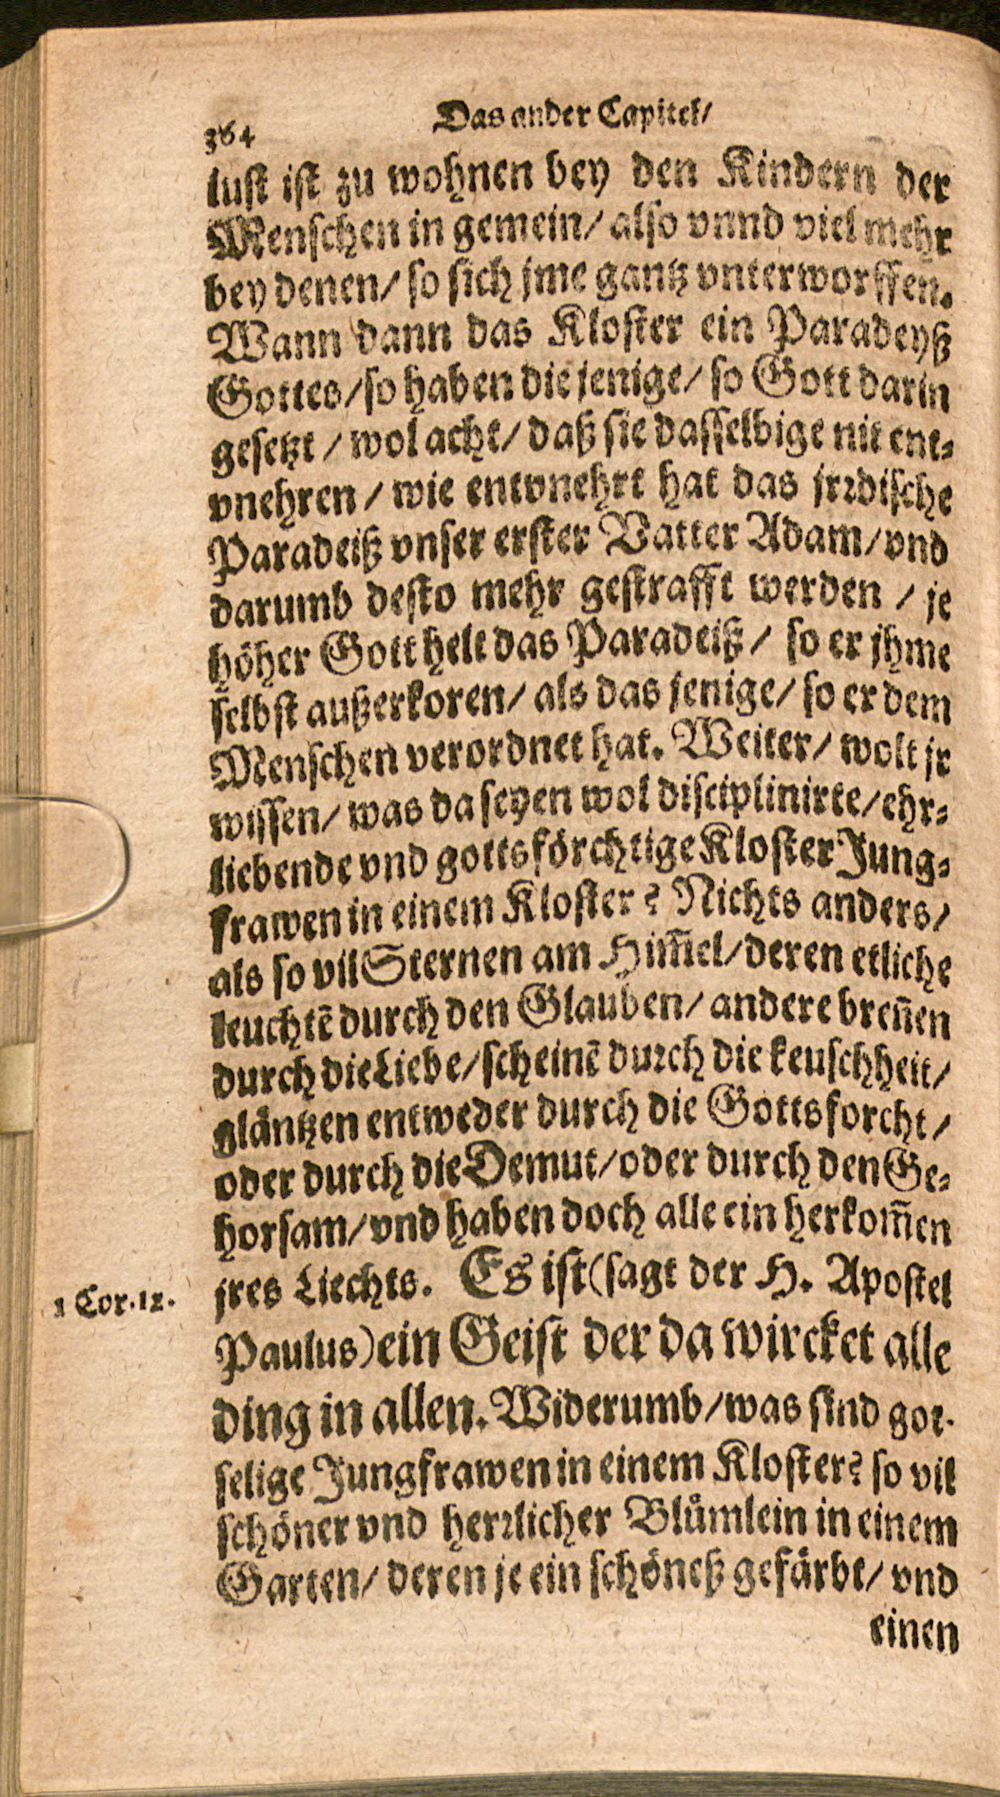 364
Das ander Capitel/
lust ist zu wohnen bey den Kindern der
Menschen in gemein/ also vnnd viel mehr
bey denen/ so sich jme gantz vnterworffen.
Wann dann das Kloster ein Paradeyß
Gottes/ so haben die jenige/ so Gott darin
gesetzt / wol acht/ daß sie dasselbige nit ent⸗
vnehren / wie entvnehrt hat das jrꝛdische
Paradeiß vnser erster Vatter Adam/ vnd
darumb desto mehr gestrafft werden / je
höher Gott helt das Paradeiß / so er jhme
selbst außerkoren/ als das jenige/ so er dem
Menschen verordnet hat. Weiter/ wolt jr
wissen/ was da seyen wol disciplinirte/ ehr⸗
liebende vnd gottsförchtige Kloster Jung⸗
frawen in einem Kloster? Nichts anders/
als so vil Sternen am Him̃el/ deren etliche
leuchtẽ durch den Glauben/ andere breñen
durch die Liebe/ scheinẽ durch die keuschheit/
gläntzen entweder durch die Gottsforcht/
oder durch die Demut/ oder durch den Ge⸗
horsam/ vnd haben doch alle ein herkom̃en
jres Liechts. Es ist (sagt der H. Apostel
1 Cor. 12.
Paulus) ein Geist der da wircket alle
ding in allen. Widerumb/ was sind got⸗
selige Jungfrawen in einem Kloster? so vil
schöner vnd herꝛlicher Blůmlein in einem
Garten/ deren je ein schöneß gefärbt/ vnd
einen